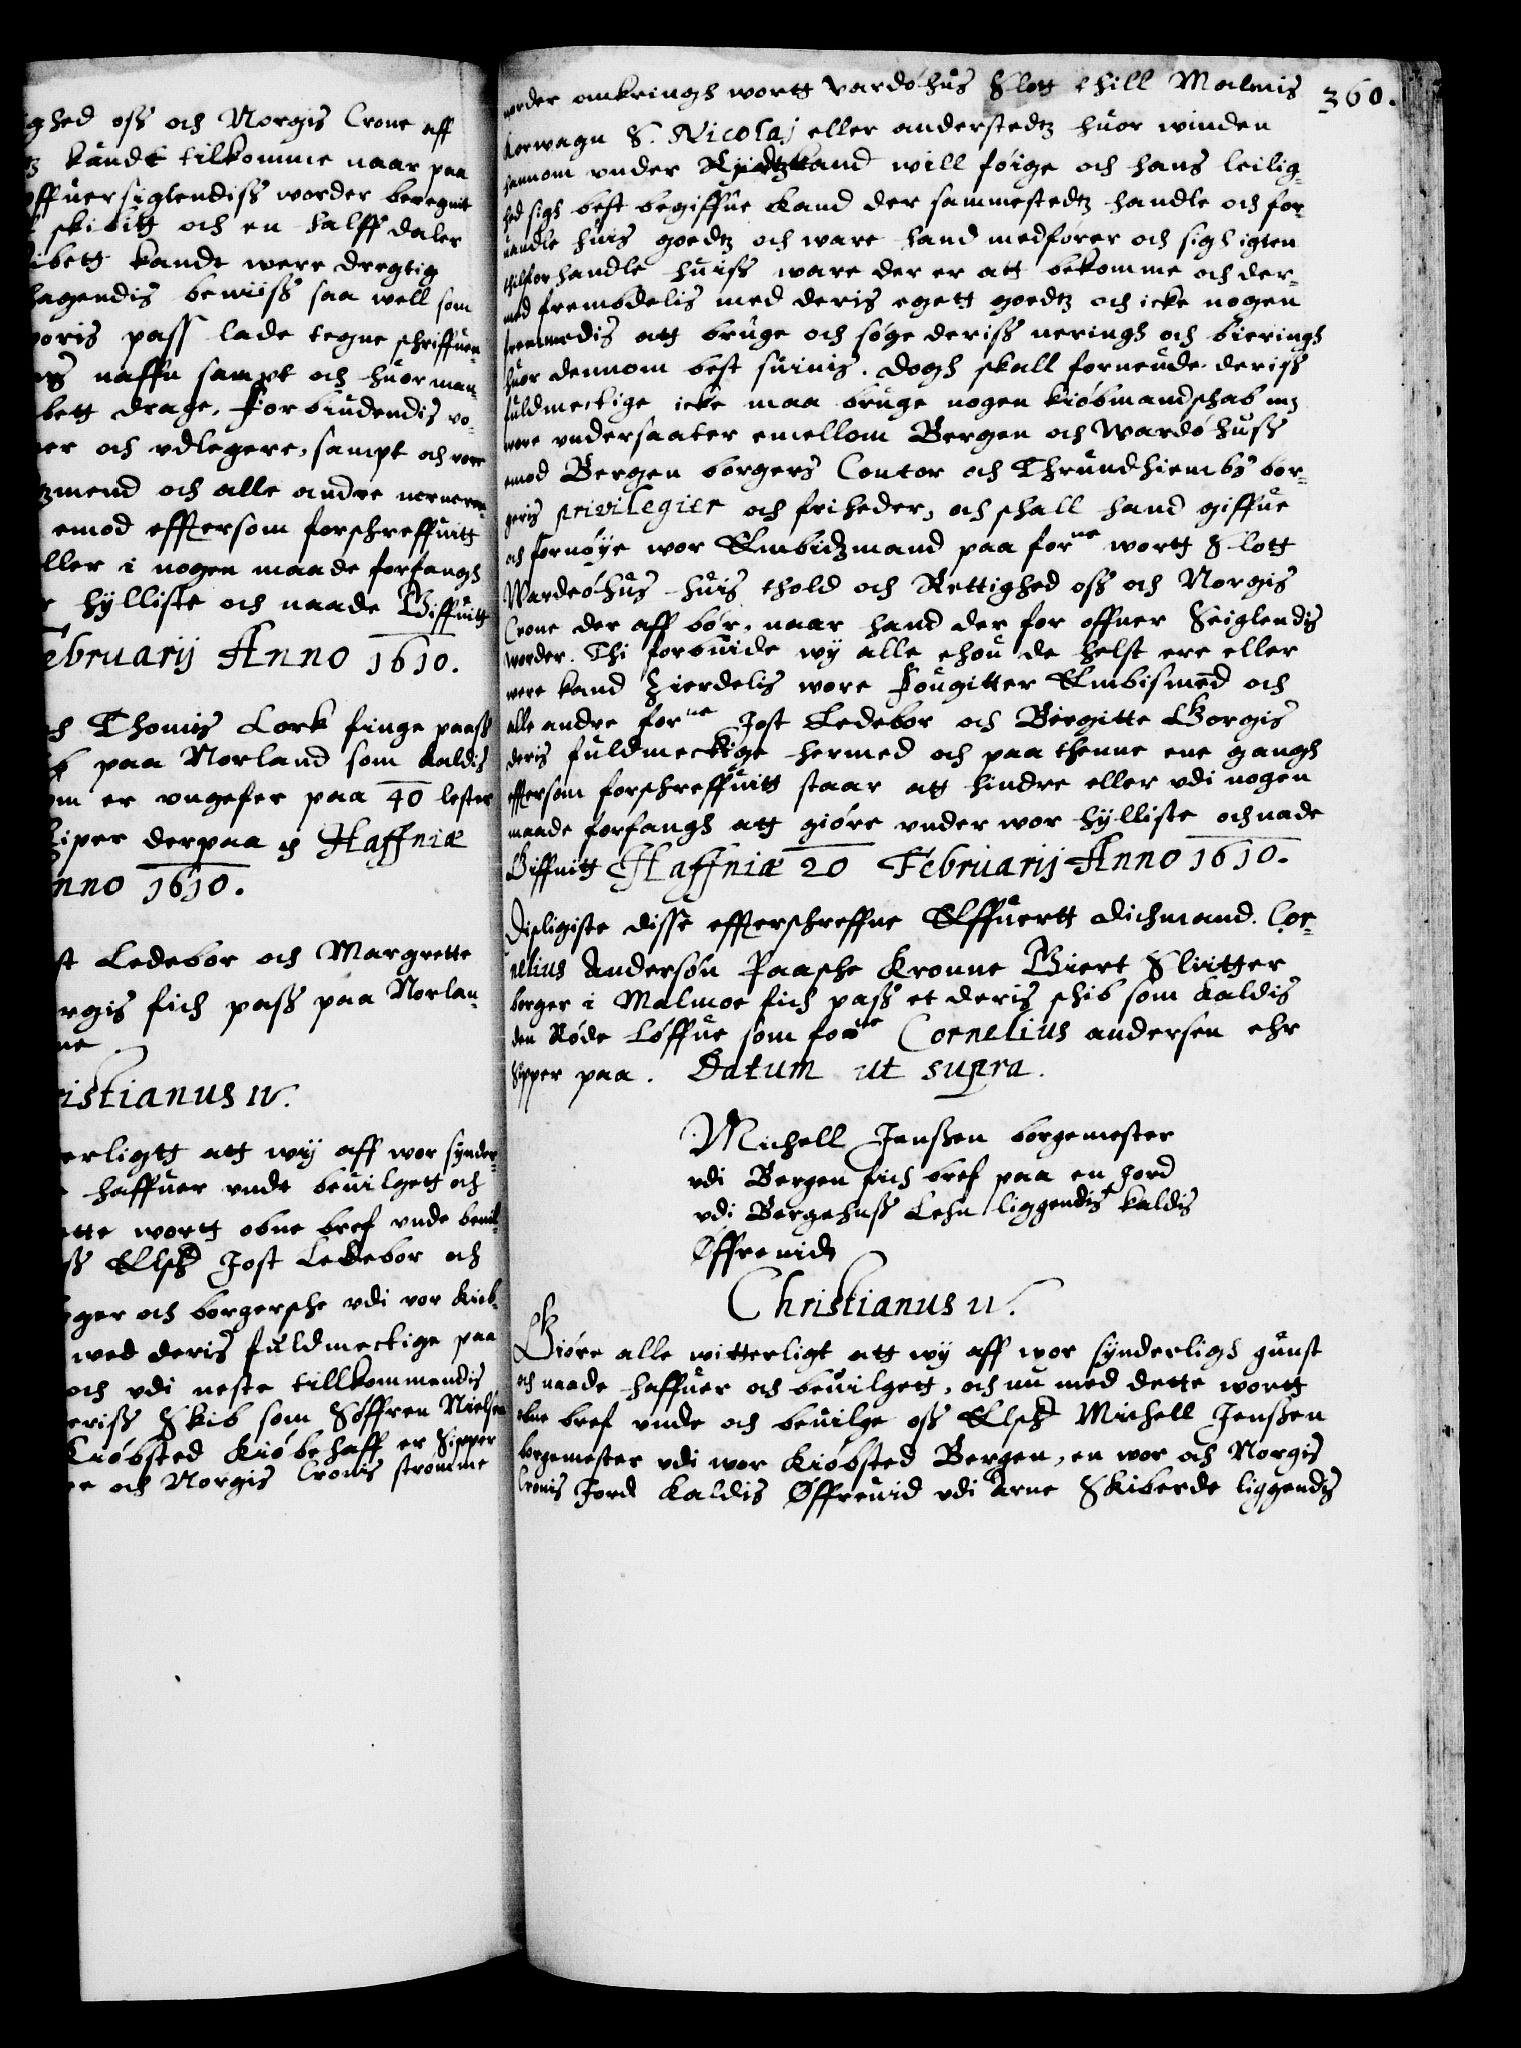 ghed oss och Norgis Crone aff
kundt tilkomme naar paa
offuersiglendiss worder beregnit
skibitt och en halff daler
ibett kandt were dregtig
hagendis bewiiss saa well som
woris pass lade tegne schriffuen
naffn sampt och huor man-
bett drage, Forbiudendis vo-
er och vdlegere, sampt och vore
zmend och alle andre nerneren-
emod efftersom forschreffuitt
ller i nogen maade forfangh
hylliste och naade Giffuitt
ebruarij Anno 1610.
ch Thomis Lork finge paass
paa Norland som kaldis
om er vngefer paa 40 lester
iper derpaa ij Haffniæ
nno 1610.
st Ledebor och Margrette
rgis fich pass paa Norlan-
ne
ristianus IV.
erligtt att wy aff wor synder-
haffuer vndt beuilgett och
tte wortt obne bref vnde beuil-
ss Elsch Jost Ledebor och
ger och borgersche vdi vor Kiøb-
wed deris fuldmectige paa
och vdi neste tillkommendis
eriss Skib som Søffren Nielsen
Kiøbsted Kiøbehaff er Sipper
e och Norgis Cronis stromme
360.
worder omkringh wortt Vardøhus Slott thill Malmis
Korwagn S. Nicolaj eller anderstedtz huor winden
hannom vnder Rydtzland will føige och hans leilig-
hed sigh best begiffue kand der sammestedtz handle och for-
handle huis goedtz och ware hand medfører och sigh igien
thilforhandle huiss ware der er att bekomme och der-
med fremdelis med deris egett goedtz och icke nogen
fremmedis att bruge och søge deriss neringh och biering
huor dennom best siunis. Dogh skall forneude deriss
fuldmectige icke maa bruge nogen kiøbmandschab mz
wore vndersaater emellom Bergen och Wardøhuss
emod Bergen borgers Contor och Thrundhiembs bor-
geris privilegier och friheder, och schall hand giffue
och fornøye wor Embidzmand paa forne wortt Slott
Wardøhus huis thold och Rettighed oss och Norgis
Crone der aff bør, naar hand der for offuer Seiglendis
worder. Thi forbiude wy alle ehou de helst ere eller
were kand Zierdelis wore Fougitter Embismend och
alle andre forne Jost Ledebor och Birgitte Borgis
deris fuldmectige hermed och paa thenne ene gangh
efftersom forschreffuitt staar att hindre eller vdi nogen
maade forfangh att giøre vnder wor hylliste och nade
Giffuitt Haffniæ 20 Februarij Anno 1610.
Disligiste disse effterschreffne Effuertt Dichmand. Cor-
nelius Andersøn Paasche Kronne Giert Slitter
borger i Malmoe fich pass et deris schib som kaldis
den Røde Løffue som forne Cornelius andersen ehr
schipper paa. Datum ut supra.
Michell Jenssen borgemester
vdi Bergen fich bref paa en Jord
vdi Bergehuss Lehn liggendis kaldis
Øffreuid
Christianus IV.
Giøre alle witterligt att wy aff wor synderligh gunst
och naade haffuer och beuilgett, och nu med dette wortt
obne bref vnde och beuilge oss Elsch Michell Jenssen
borgemester vdi wor kiøbsted Bergen, en wor och Norgis
Cronis Jord kaldis Øffreuid vdi Arne Skiberde liggendis